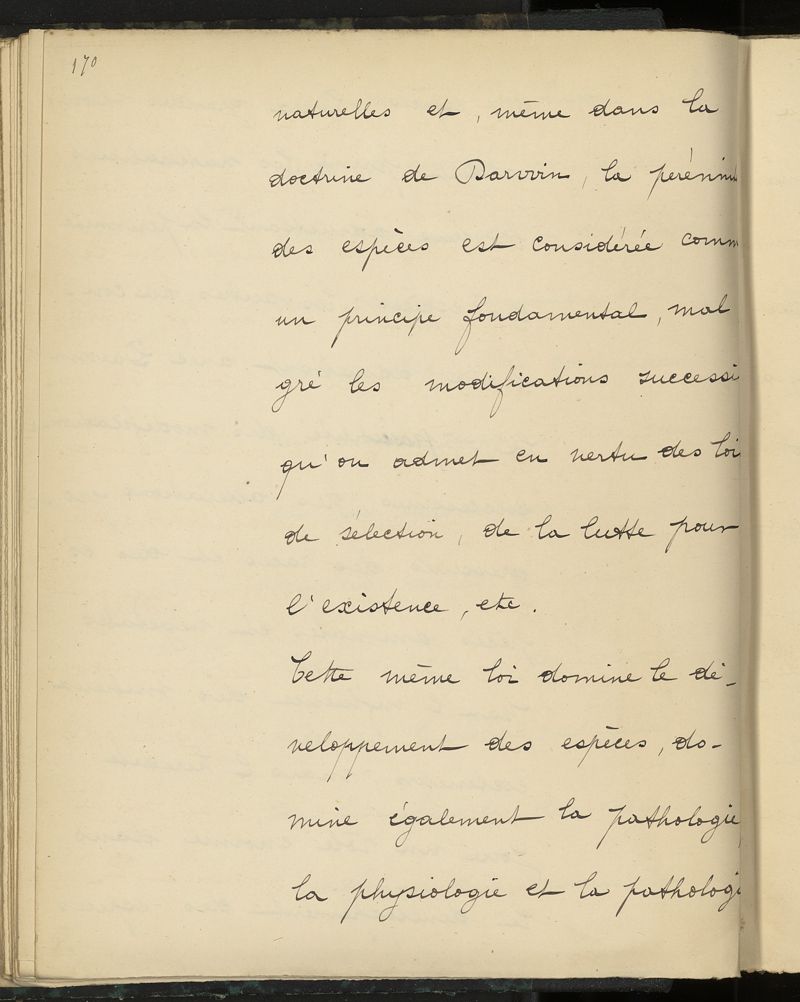 170
naturelles et, même dans la
doctrine de Darwin, la perénni
des espèces est considérée comm
un principe fondamental, mal
gré les modifications successi
qu'on admet en vertu des loi
de sélection, de la lutte pour
l'existence, etc.
Cette même loi domine le dé-
veloppement des espèces, do-
mine également la pathologie,
la physiologie et la pathologi